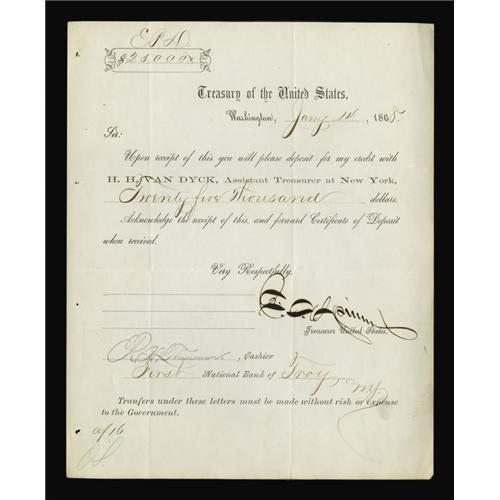 $25000
Treasury of the United States,
Washington, Jany 14, 1868.
Sir:
Upon receipt of this you will please deposit for my credit with
H. H. VAN DYCK, Assistant Treasurer at New York,
Twenty five thousand dollars.
Acknowledge the receipt of this, and forward Certificate of Deposit
when received.
Very Respectfully,
Treasurer United States.
Cashier
First National Bank of Troy, NY
Tranfers under these letters must be made without risk or expense
to the Government.
a/16